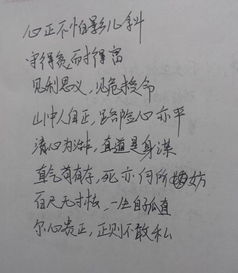 心正不怕影儿斜
守得贫,耐得富
见利思义,见危授命
山中人自正,路险心亦平
清心为治本,直道是身谋
直气苟有存,死亦何所妨
百尺无寸枝,一生自孤直
尔心贵正,正则不敢私